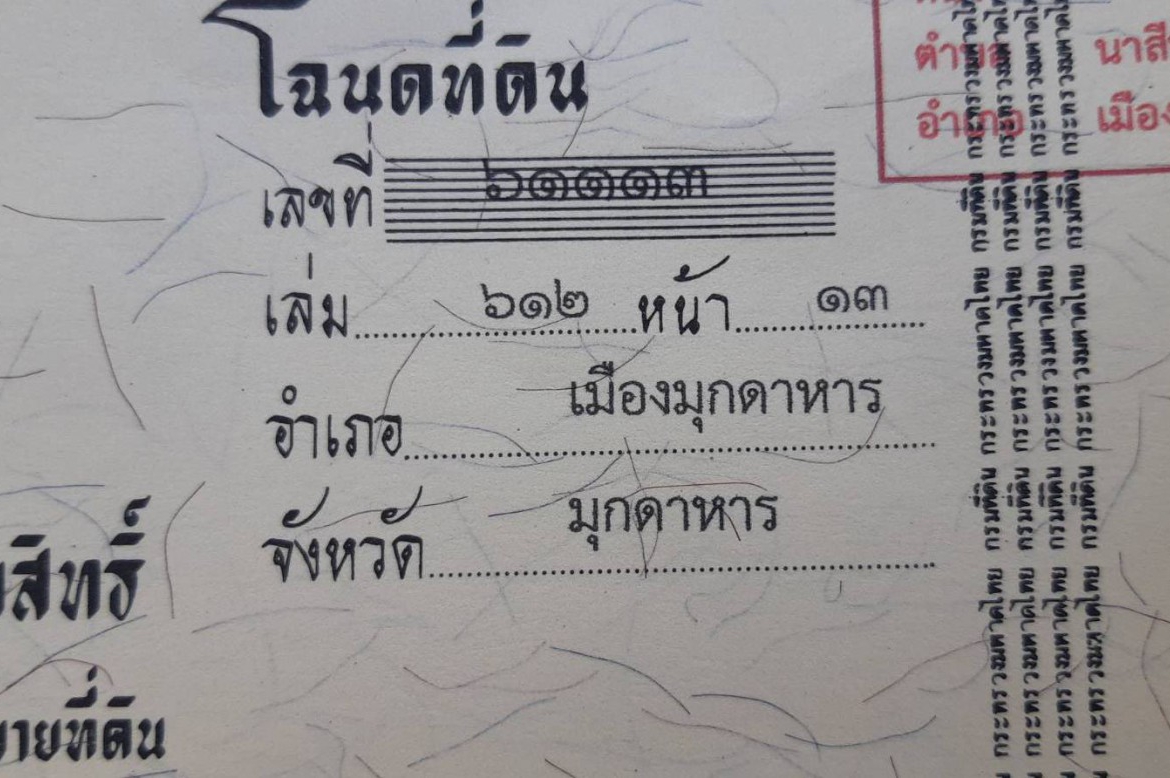 โฉนดที่ดิน
เลขที่ ๖๑๑๑๓
เล่ม ๖๑๒ หน้า ๑๓
อำเภอ เมืองมุกดาหาร
จังหวัด มุกดาหาร
ตำบล นาสี
อำเภอ เมือง
สิทธิ์
ที่ดิน
กรมที่ดิน กระทรวงมหาดไทย กรมที่ดิน กระทรวงมหาดไทย
กรมที่ดิน กระทรวงมหาดไทย กรมที่ดิน กระทรวงมหาดไทย
กรมที่ดิน กระทรวงมหาดไทย กรมที่ดิน กระทรวงมหาดไทย
กรมที่ดิน กระทรวงมหาดไทย กรมที่ดิน กระทรวงมหาดไทย